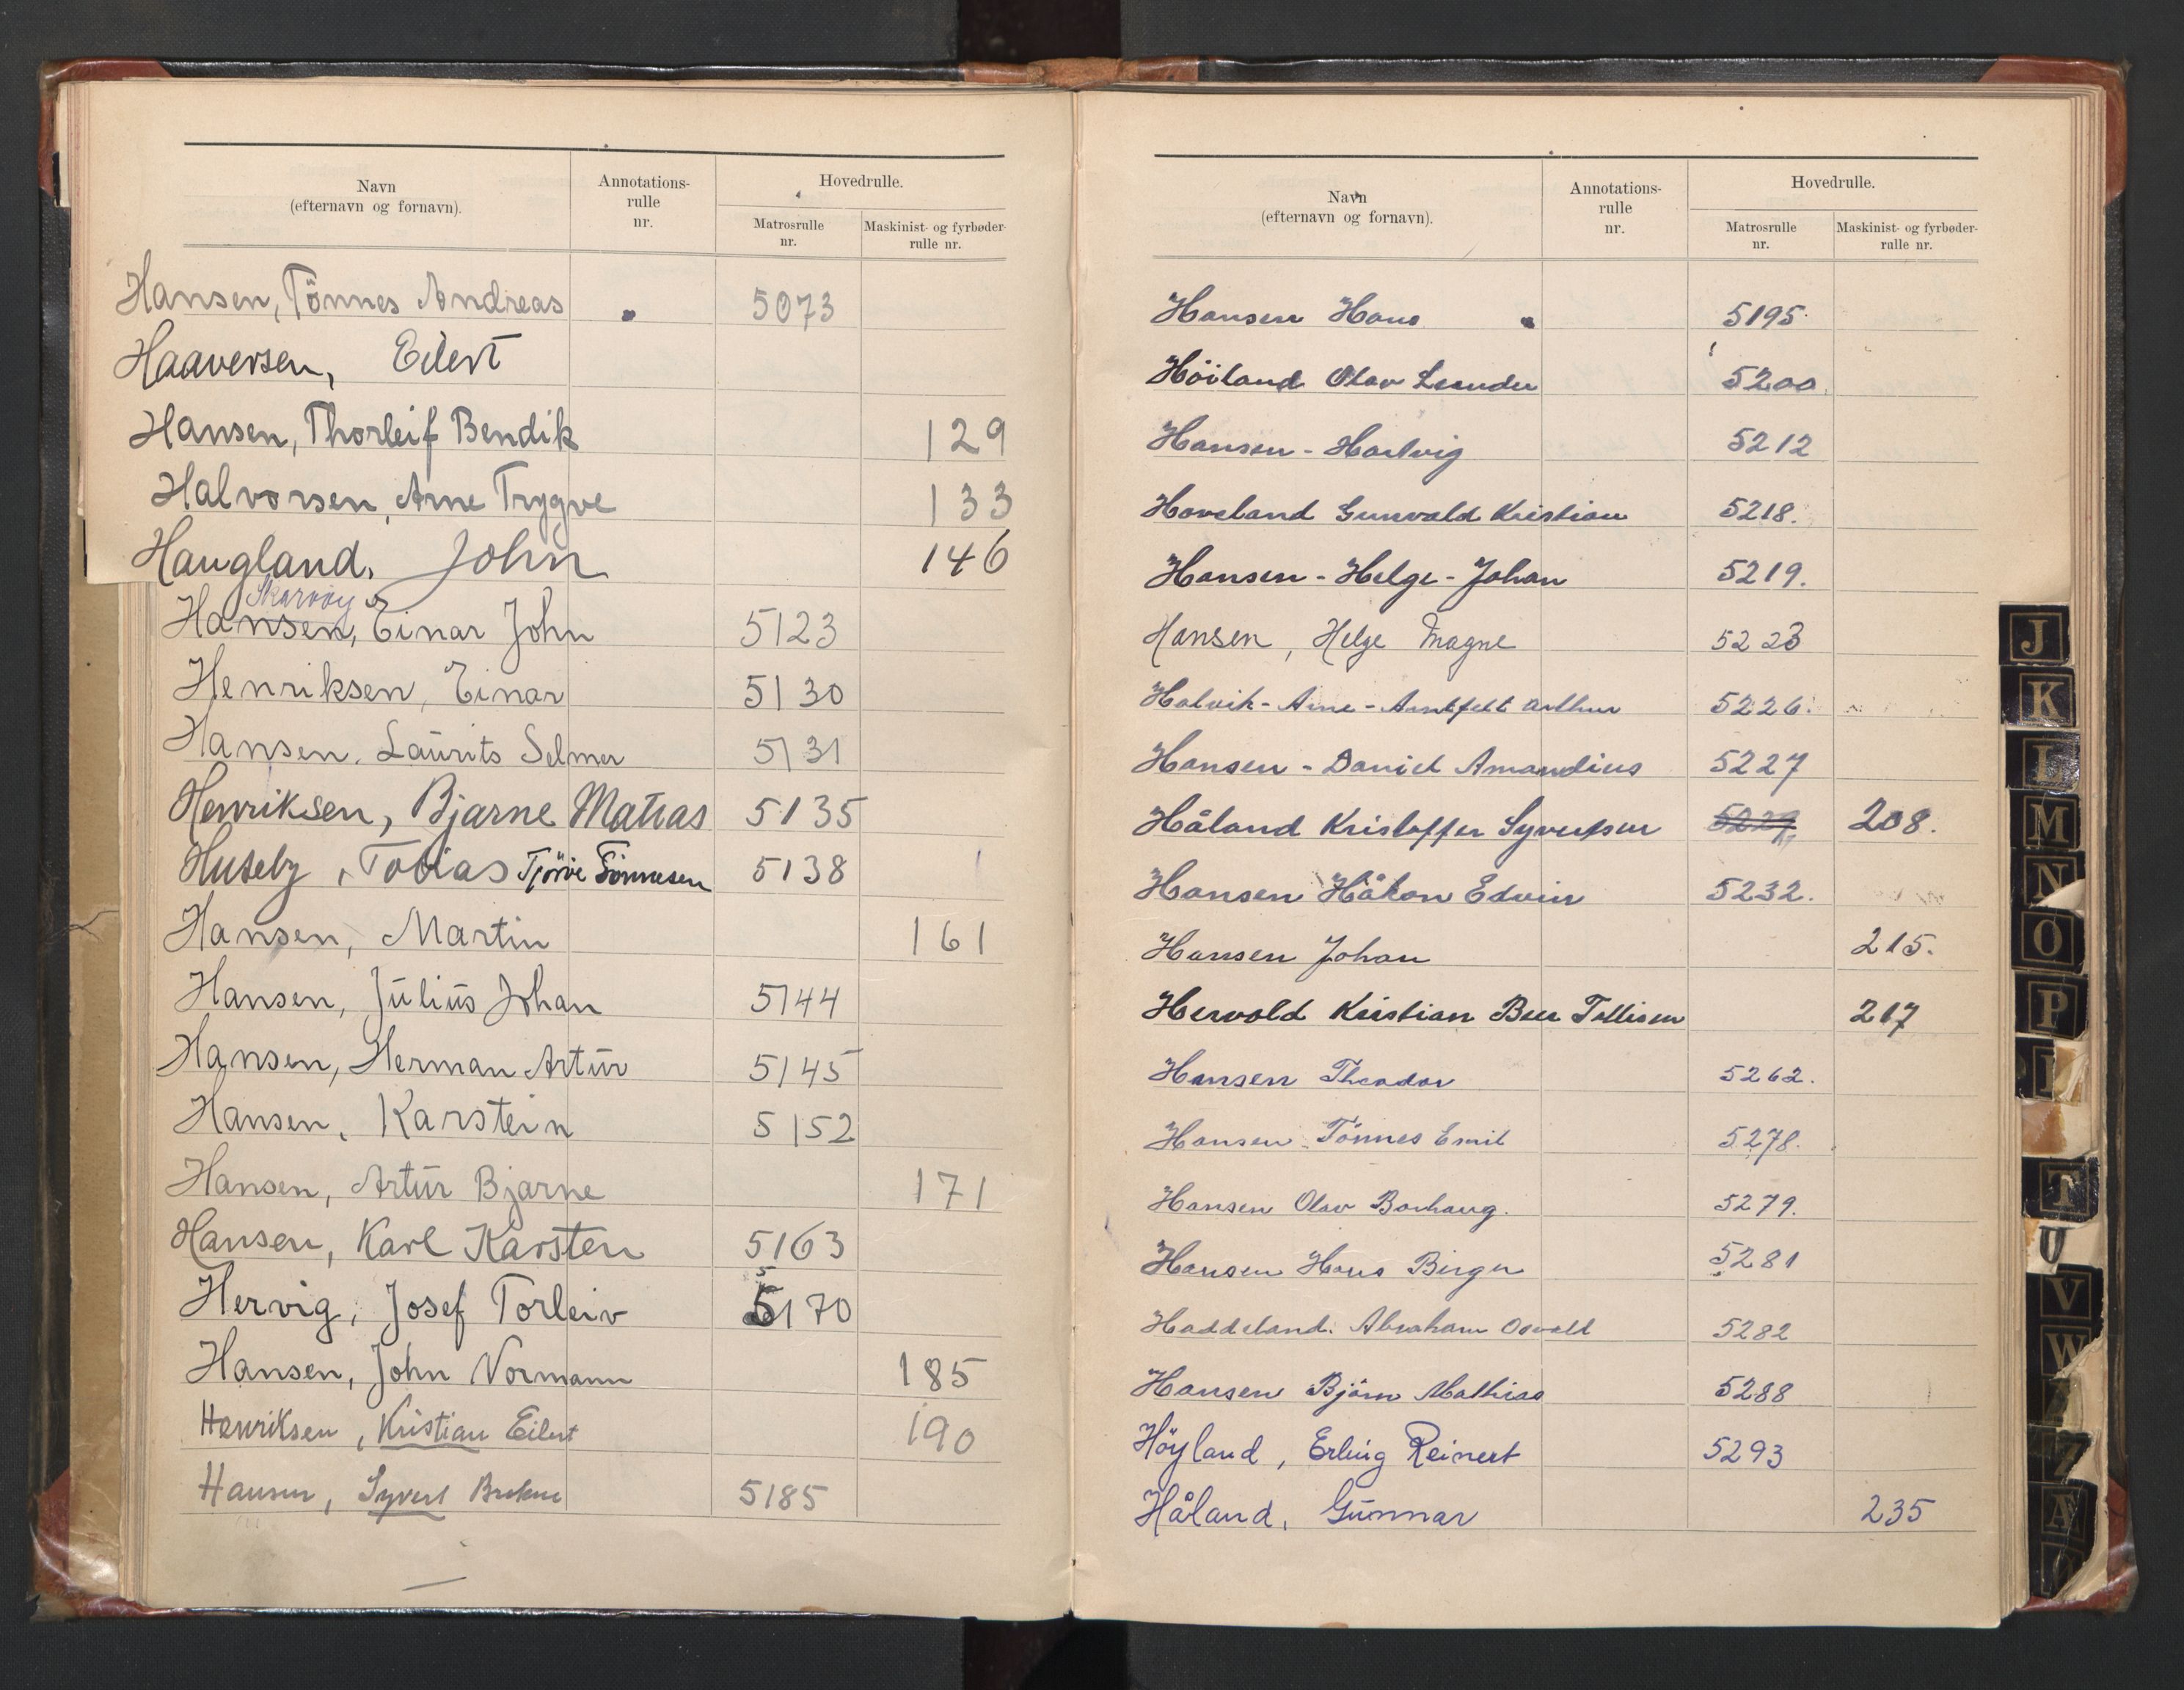 Navn
(efternavn og fornavn).
Annotations-
rulle
nr.
Hovedrulle.
Matrosrulle
nr.
Maskinist- og fyrbøder-
rulle nr.
Hansen, Tönnes Andreas 5073
Haaversen, Eilert
Hansen, Thorleif Bendik 129
Halvorsen, Arne Trygve 133
Haugland, John 146
Skarvøy
Hansen, Einar John 5123
Henriksen, Einar 5130
Hansen, Laurits Selmer 5131
Henriksen, Bjarne Matias 5135
Huseby, Tobias Tjörve Tönnesen 5138
Hansen, Martin 161
Hansen, Julius Johan 5144
Hansen, Herman Artur 5145
Hansen, Karstein 5152
Hansen, Artur Bjarne 171
Hansen, Karl Karsten 5163
5
Hervig, Josef Torleiv 5170
Hansen, John Normann 185
Henriksen, Kristian Eilert 190
Hansen, Syvert 5185
Navn
(efternavn og fornavn).
Annotations-
rulle
nr.
Hovedrulle.
Matrosrulle
nr.
Maskinist- og fyrbøder-
rulle nr.
Hansen Hans 5195.
Höiland Olav Leander 5200.
Hansen - Hartvig 5212
Hoveland Gunvald Kristian 5218.
Hansen - Helge - Johan 5219.
Hansen, Helge Magne 5223
Halvik - Arne - Arthur 5226.
Hansen - Daniel Amandius 5227
Håland Kristoffer Syvertsen 5229 208.
Hansen Håkon Edvin 5232.
Hansen Johan 215.
Hervold Kristian Tellisen 217
Hansen Theodor 5262.
Hansen Tönnes Emil 5278.
Hansen Olav Borhaug. 5279.
Hansen Hans Birger 5281
Haddeland. Abraham Osvald 5282
Hansen Björn Mathias 5288
Höyland, Erling Reinert 5293
Håland, Gunnar 235
J
K
L
M
N
O
P
T
U
V
W
Z
Æ